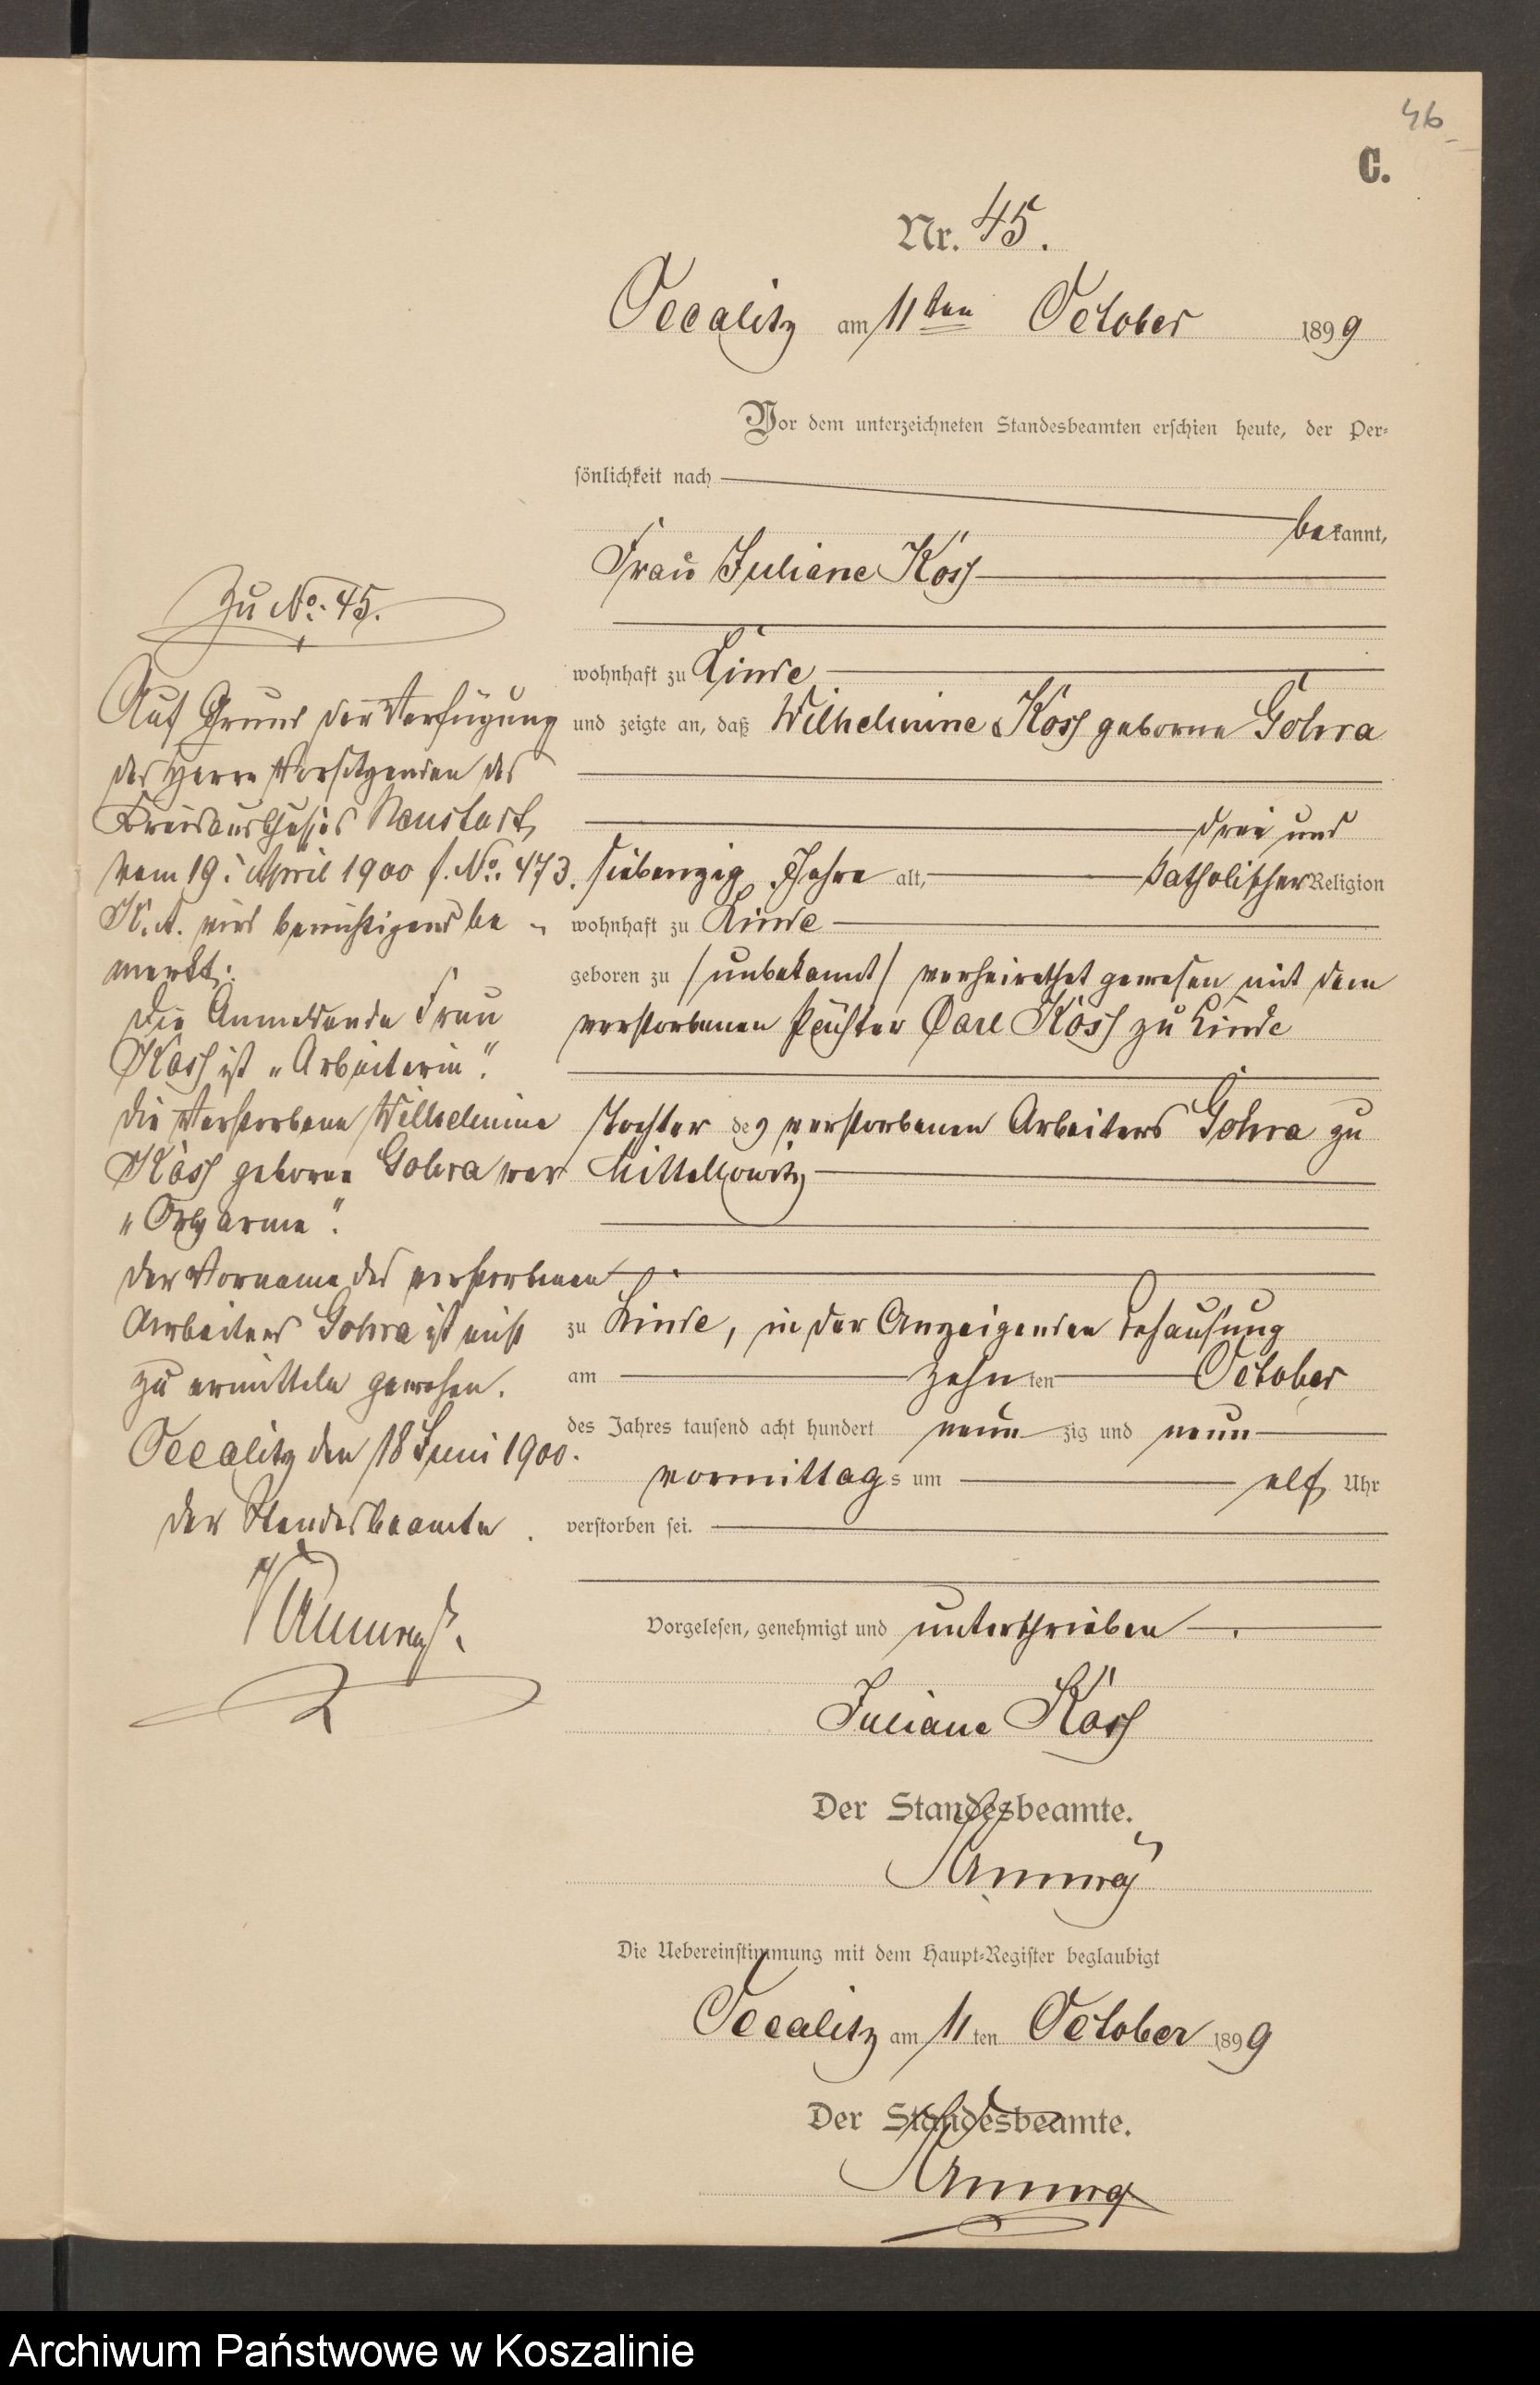 46
C.
Nr. 45.
Occalitz am 11ten October 1899
Vor dem unterzeichneten Standesbeamten erschien heute, der Per-
sönlichkeit nach
bekannt,
Frau Juliane Köss
wohnhaft zu Linde
und zeigte an, daß Wilhelmine Köss geborne Gohra
drei und
siebenzig Jahre alt, katholischer Religion
wohnhaft zu Linde
geboren zu /unbekannt/ verheirathet gewesen mit dem
verstorbenen Pächter Carl Köss zu Linde
Tochter des verstorbenen Arbeiters Gohra zu
zu Linde, in der Anzeigenden Behausung
am zehnten October
des Jahres tausend acht hundert neunzig und neun
vormittags um elf Uhr
verstorben sei.
Vorgelesen, genehmigt und unterschrieben
Juliane Köss
Der Standesbeamte.
Die Uebereinstimmung mit dem Haupt-Register beglaubigt
Occalitz am 11ten October 1899
Der Standesbeamte.
Zu No: 45.
Auf Grund der Verfügung
des Herrn Vorsitzenden des
Kreisausschusses Neustadt,
vom 19. April 1900 f. No. 473.
K. A. wird berichtigend be-
merkt:
Die Anmeldende Frau
Köss ist "Arbeiterin".
Die Verstorbene Wilhelmine
Köss geborne Gohra war
"Ortsarme".
Der Vorname des verstorbenen
Arbeiters Gohra ist nicht
zu ermitteln gewesen.
Occalitz den 18 Juni 1900.
Der Standesbeamte.
Archiwum Państwowe w Koszalinie